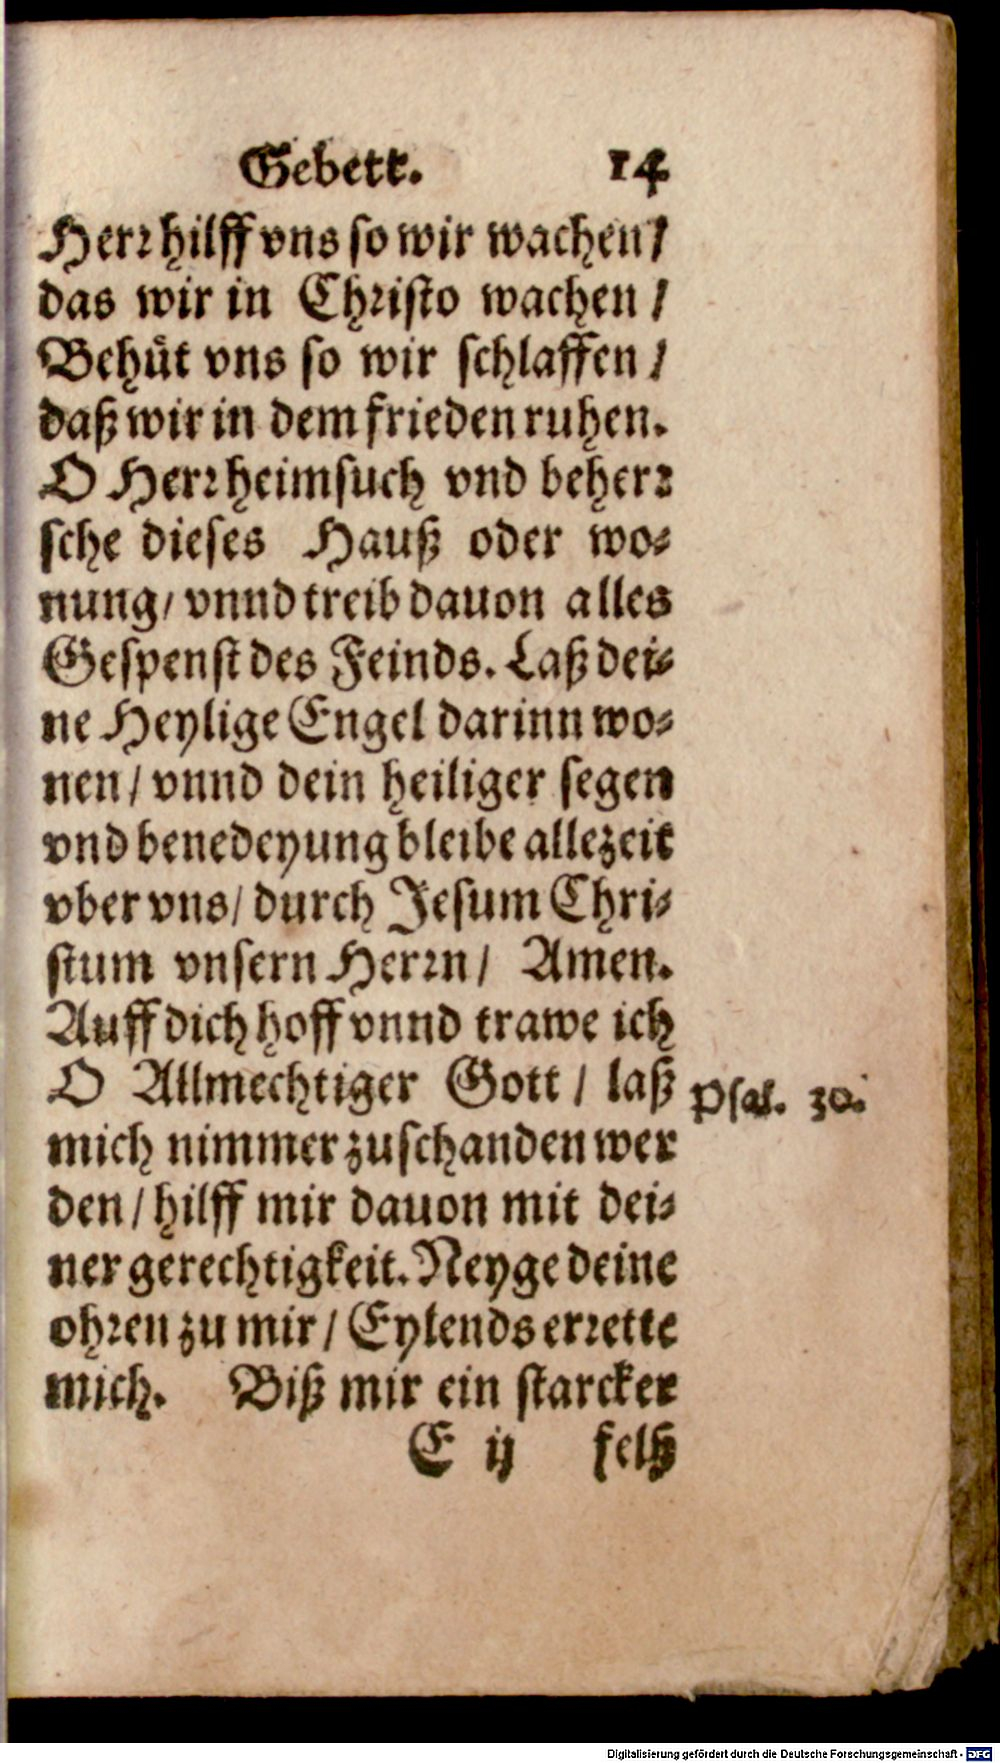 Gebett. 14
Herr hilff vns so wir wachen /
das wir in Christo wachen /
Behüt vns so wir schlaffen /
daß wir in dem frieden ruhen.
O Herr heimsuch vnd beherr
sche dieses Hauß oder wo-
nung / vnnd treib dauon alles
Gespenst des Feinds. Laß dei-
ne Heylige Engel darinn wo-
nen / vnnd dein heiliger segen
vnd benedeyung bleibe allezeit
vber vns / durch Jesum Chri-
stum vnsern Herrn / Amen.
Auff dich hoff vnnd trawe ich
O Allmechtiger Gott / laß
Psal. 30.
mich nimmer zuschanden wer
den / hilff mir dauon mit dei-
ner gerechtigkeit. Neyge deine
ohren zu mir / Eylends errette
mich. Biß mir ein starcker
E ij felß
Digitalisierung gefördert durch die Deutsche Forschungsgemeinschaft - DFG